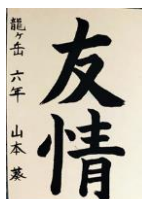 友情
龍ヶ岳 六年 山本 葵